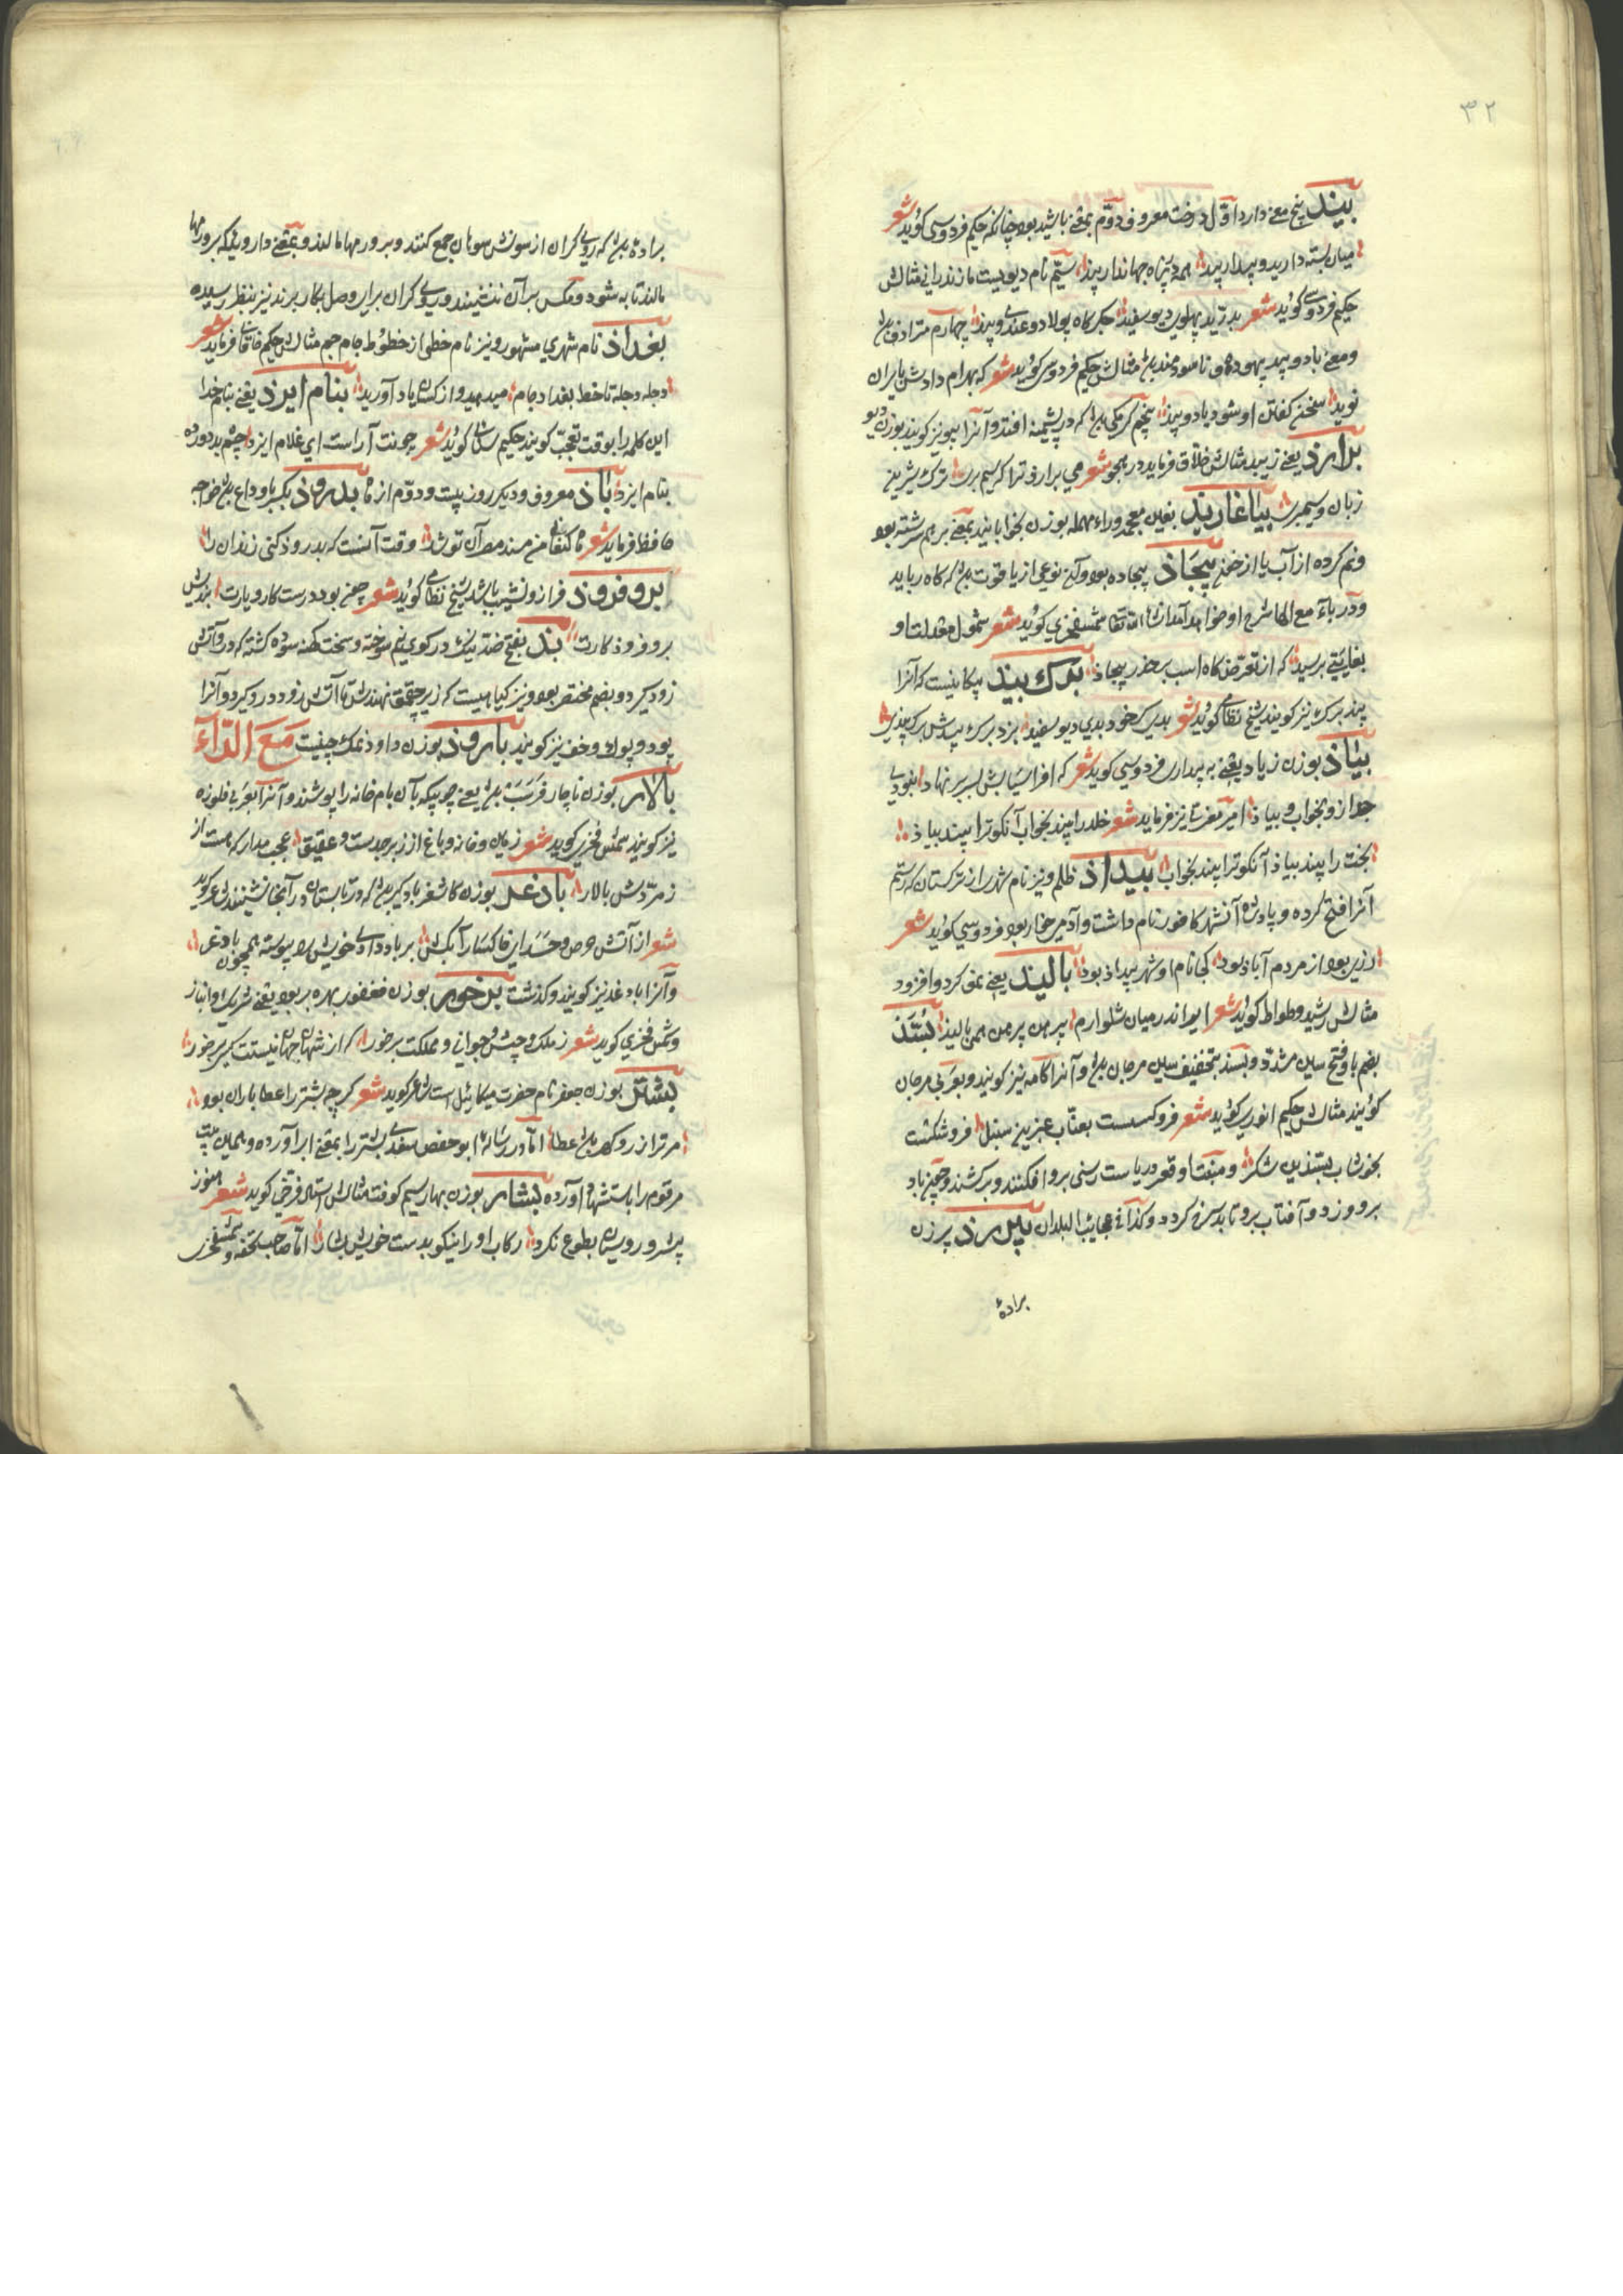 ۳۲
بیذ پنج معنی دارد اوّل درخت معروف دوّم بمعنی باشید بود چنانکه حکیم فردوسی کوید شعر
میان بسته دارید و بیدار بیذ همه در پناه جهاندار بیذ سیّم نام دیویست مازندرانی مثالش
حکیم فردوسی کوید شعر بدرّید پهلوی دیو سفید جکرکاه پولاد و غندی و بیذ چهارم مترادف باد
و معنی باد و بید بیهوده و ناسودمند باشد مثالش حکیم فردوسی کوید شعر که بهرام دادش بایران
نوید سخن کفتن او شود باد و بیذ پنجم کرمکی باشد که در پشمینه افتد و آنرا بیو نیز کویند بوزن دیو
برازذ یعنی زیبد مثالش خلاق فرماید در هجو شعر می برازد ترا کریم برت ترک شیرین
زبان و سیم برت بیاغارید بغین معجمه و راء مهمله بوزن بخوابانید بمعنی برهم سرشته بود
و نم کرده از آب یا از خون بیجاذ بیجاده بود و آن نوعی از یاقوت باشد که کاه رباید
و در باء مع الهاء شرح او خواهد آمد ان شاء الله تعالی شمس فخری کوید شعر شمول معدلت او
بغایتی برسید که از تعرّض کاه است بر حذر بیجاذ بدک بیذ پیکانیست که آنرا
بید برک نیز کویند شیخ نظامی کوید شعر بدیک خود بدی دیو سفید بزد برک بیدش برک بیذی
بیاذ بوزن زیاد یعنی به بیداری فردوسی کوید شعر که افراسیابش بسر بر نهاد نبودی
جدا زو بخواب و بیاذ امیر معزی نیز فرماید شعر خلد را بیند بخواب آنکو ترا بیند بیاذ
بخت را بیند بیاذ آنکو ترا بیند بخواب بیداذ ظلم و نیز نام شهری از ترکستان که رستم
آنرا فتح کرده و پادشاه آن شهر کافور نام داشت و آدمی خوار بود فردوسی کوید شعر
دزی بود از مردم آباد بود کجا نام او شهر بیداذ بود بالید یعنی نمو کرد و افزود
مثالش رشید وطواط کوید شعر ایر اندر میان شلوارم پیرهن پیرهن همی بالید بُسّذ
بضم با و فتح سین مشدّد و بسذ بتخفیف سین مرجان باشد و آنرا کامه نیز کویند و بعربی مرجان
کویند مثالش حکیم انوری کوید شعر فروکسست بعنّاب عنبرین سنبل فروشکست
بخوشاب بسّذین شکر و منبت او قعر دریاست رسنی برو افکنند و برکشند و چون باد
برو وزد و آفتاب برو تابد سرخ کردد و کذا فی عجایب البلدان پرزن
برادهٔ
براده باشد که رویکران از سونش سوهان جمع کنند و بر ورمها مالند و بمعنی داروئیکه بر ورمها
مالند تا به شود و مکس بر آن ننشیند و رویکران برای وصل بکار برند نیز بنظر رسیده
بغداذ نام شهری مشهور و نیز نام خطی از خطوط جام جم مثالش حکیم خاقانی فرماید شعر
دجله دجله تا خط بغداد جام می دهید و از کسان یاد آورید بنام ایزذ یعنی بنام خدا
این کلمه را بوقت تعجّب کویند حکیم سنائی کوید شعر چو نت آراست ای غلام ایزد چشم بد دور
بنام ایزد باذ معروف و دیکر روز بیست و دوّم از ماه بدروذ بکسر با وداع باشد خواجه
حافظ فرماید شعر ماه کنعانی من مسند مصر آن تو شد وقت آنست که بدروذ کنی زندان را
بروفروذ فراز و نشیب باشد شیخ نظامی کوید شعر چون بود درست کار و بارت براندیش
بر و فروذ کارت بذ بفتح ضد نیک و رکوی نیم سوخته و سخت کهنه سوده کشته که درو آتش
زود کیرد و بضم مختصر بود و نیز کیاهیست که زیر چقماق نهند تا آتش زود درو کیرد و آنرا
پود و پوک و خف نیز کویند باروذ بوزن داود نمک چینیت مَعَ الرّآء
بالار بوزن ناچار فَرَسَب باشد یعنی چوبیکه بآن بام خانه را پوشند و آنرا بعربی
نیز کویند شمس فخری کوید شعر زمین و خانه و باغ از زبرجدست و عقیق عجب مدار که هست از
زمرّدش بالار بادغر بوزن کاشغر بادکیر باشد که در تابستان در آنجا نشینند شاعر کوید
شعر از آتش حرص و حسد این خاکسار آبکش بر باد داده خویش را پیوسته همچون بادغر
و آنرا بادغد نیز کویند و کذشت برخور بوزن مغفور بهره بر بود یعنی شریک و انباز
و شمس فخری کوید شعر ز ملک و چشش و جوانی و مملکت برخور که از شهان جهان نیستت کسی برخور
بشتر بوزن جعفر نام حضرت میکائیل است شاعر کوید شعر کرچه بشتر را عطا باران بود
مر ترا زر و کهر باشد عطا امّا در رسالهٔ ابو حفص سغدی بشتر را بمعنی ابر آورده و همین بیت
مرقوم را باستشهاد آورده بشار بوزن بهار سیم کوفته مثالش استاد فرخی کوید شعر هنوز
پیشرو روسیان بطوع نکرد رکاب او را نیکو بدست خویش بشار امّا صاحب تحفه و شمس فخری